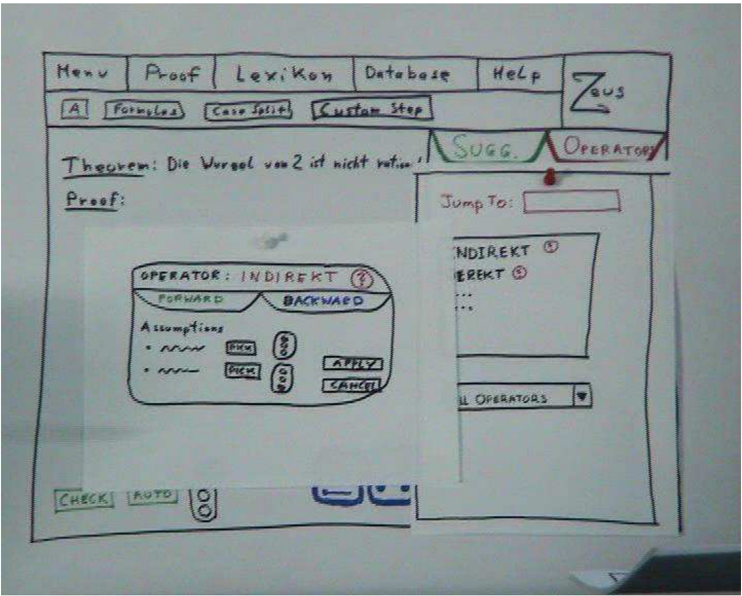 Menu Proof Lexikon Database Help Zeus
A Formulas Case Split Custom Step
SUGG. OPERATORS
Theorem: Die Wurzel von 2 ist nicht
Proof:
Jump To:
NDIREKT ?
EREKT ?
...
...
LL OPERATORS
OPERATOR: INDIREKT ?
FORWARD BACKWARD
Assumptions
PICK
APPLY
PICK
CANCEL
CHECK AUTO